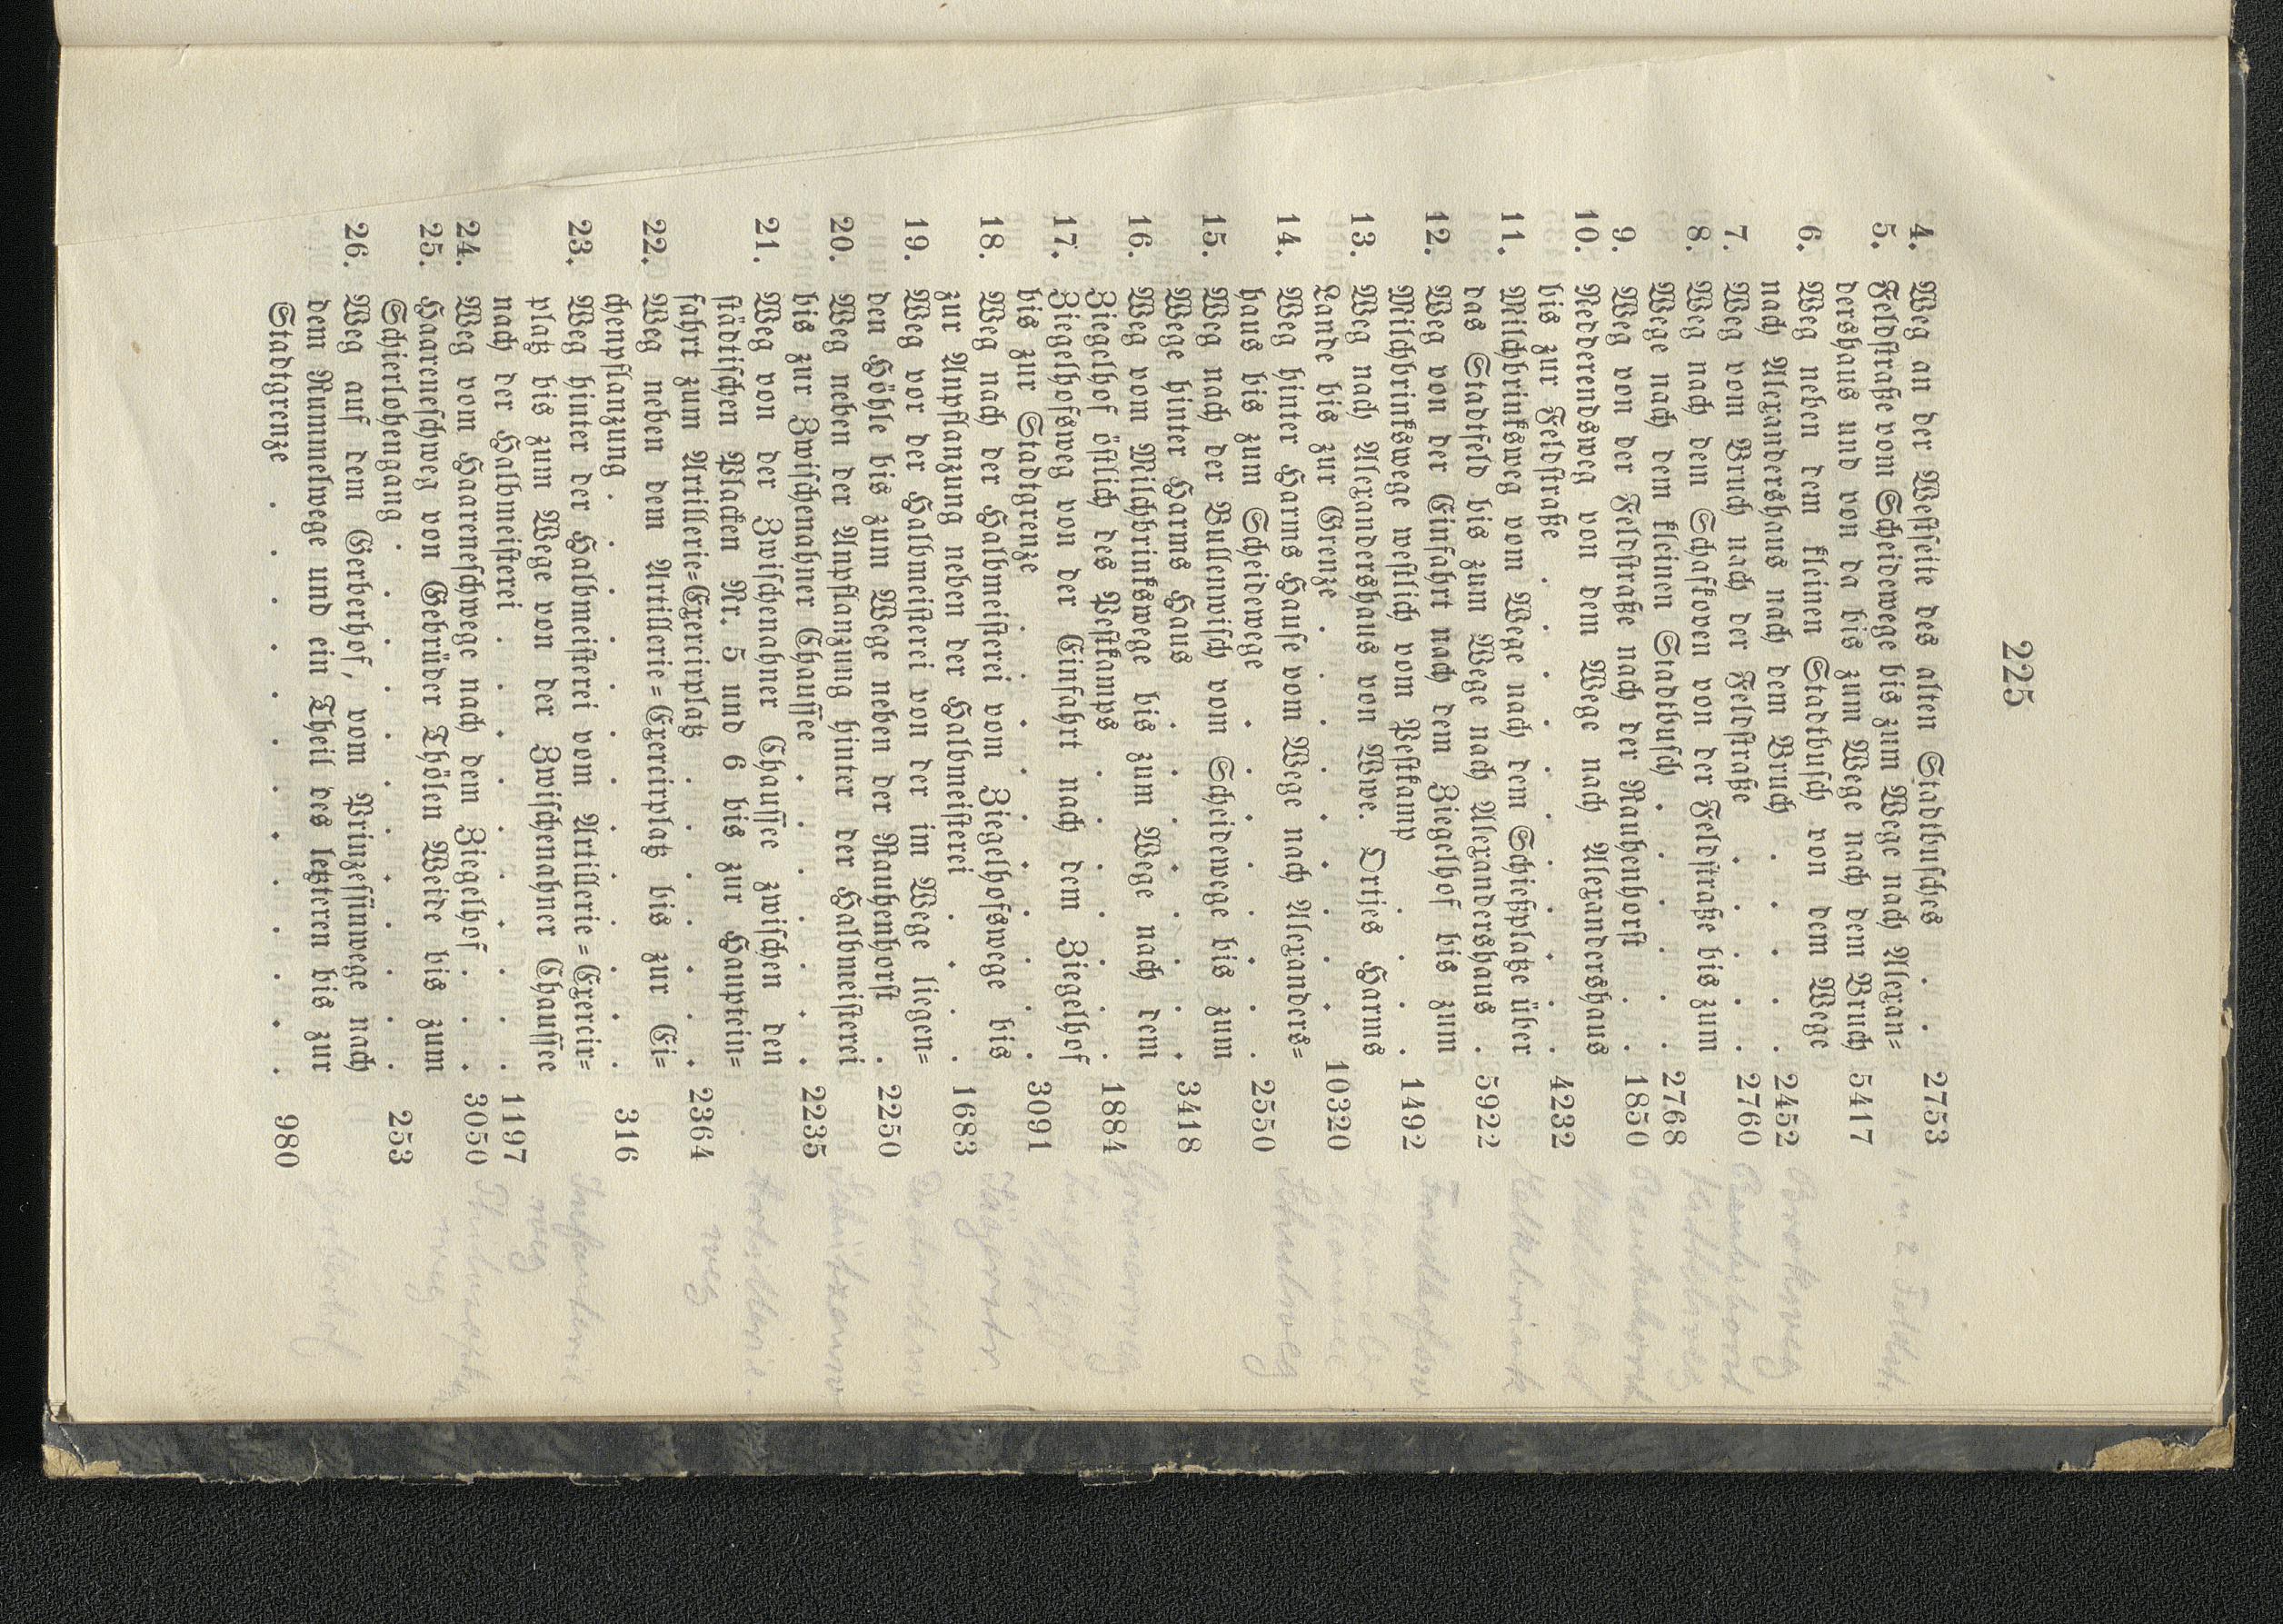 225
4. Weg an der Westseite des alten Stadtbusches . . 2753
5. Feldstraße vom Scheidewege bis zum Wege nach Alexan=
dershaus und von da bis zum Wege nach dem Bruch 5417
6. Weg neben dem kleinen Stadtbusch von dem Wege
nach Alexandershaus nach dem Bruch . . . . 2452
7. Weg vom Bruch nach der Feldstraße . . . . 2760
8. Weg nach dem Schafkoven von der Feldstraße bis zum
Wege nach dem kleinen Stadtbusch . . . . . 2768
9. Weg von der Feldstraße nach der Rauhenhorst . . 1850
10. Nedderendsweg von dem Wege nach Alexandershaus
bis zur Feldstraße . . . . . . . . 4232
11. Milchbrinksweg vom Wege nach dem Schießplatze über
das Stadtfeld bis zum Wege nach Alexandershaus . 5922
12. Weg von der Einfahrt nach dem Ziegelhof bis zum
Milchbrinkswege westlich vom Pestkamp . . . . 1492
13. Weg nach Alexandershaus von Wwe. Ortjes Harms
Lande bis zur Grenze . . . . . . . 10320
14. Weg hinter Harms Hause vom Wege nach Alexanders=
haus bis zum Scheidewege . . . . . . 2550
15. Weg nach der Bullenwisch vom Scheidewege bis zum
Wege hinter Harms Haus . . . . . . 3418
16. Weg vom Milchbrinkswege bis zum Wege nach dem
Ziegelhof östlich des Pestkamps . . . . . 1884
17. Ziegelhofsweg von der Einfahrt nach dem Ziegelhof
bis zur Stadtgrenze . . . . . . . 3091
18. Weg nach der Halbmeisterei vom Ziegelhofswege bis
zur Anpflanzung neben der Halbmeisterei . . . 1683
19. Weg vor der Halbmeisterei von der im Wege liegen=
den Höhle bis zum Wege neben der Rauhenhorst . 2250
20. Weg neben der Anpflanzung hinter der Halbmeisterei
bis zur Zwischenahner Chaussee . . . . . 2235
21. Weg von der Zwischenahner Chaussee zwischen den
städtischen Placken Nr. 5 und 6 bis zur Hauptein=
fahrt zum Artillerie=Exercirplatz . . . . . 2364
22. Weg neben dem Artillerie=Exercirplatz bis zur Ei=
chenpflanzung . . . . . . . . . 316
23. Weg hinter der Halbmeisterei vom Artillerie=Exercir=
platz bis zum Wege von der Zwischenahner Chaussee
nach der Halbmeisterei . . . . . . . 1197
24. Weg vom Haareneschwege nach dem Ziegelhof . . 3050
25. Haareneschweg von Gebrüder Thölen Weide bis zum
Schierlohengang . . . . . . . . 253
26. Weg auf dem Gerberhof, vom Prinzessinwege nach
dem Rummelwege und ein Theil des letzteren bis zur
Stadtgrenze . . . . . . . . . 980
1. u. 2. Feldstr.
Brookweg
Rauhehorst
Nedderend
Melkbrink
Friedhofsw
Alexander
chaussee
Schulweg
Grünerweg.
Ziegelhof
str.
Jägerstr.
Schützenw
Artillerie-
weg
Infanterie-
weg
weg
Gerberhof